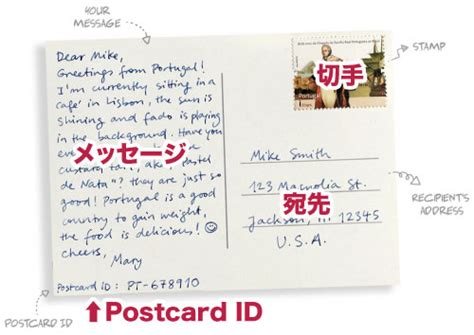 YOUR
MESSAGE
Dear Mike,
Greetings from Portugal!
I'm currently sitting in a
café in Lisbon, the sun is
shining and fado is playing
in the background. Have you
メッセージ
de Nata"? they are just so
good! Portugal is a good
country to gain weight,
the food is delicious!
cheers,
Mary
Postcard ID: PT-678910
POSTCARD ID
⬆Postcard ID
STAMP
Portugal
切手
Mike Smith
123 Magnolia St.
宛先
Jackson, 12345
U.S.A.
RECIPIENT'S
ADDRESS